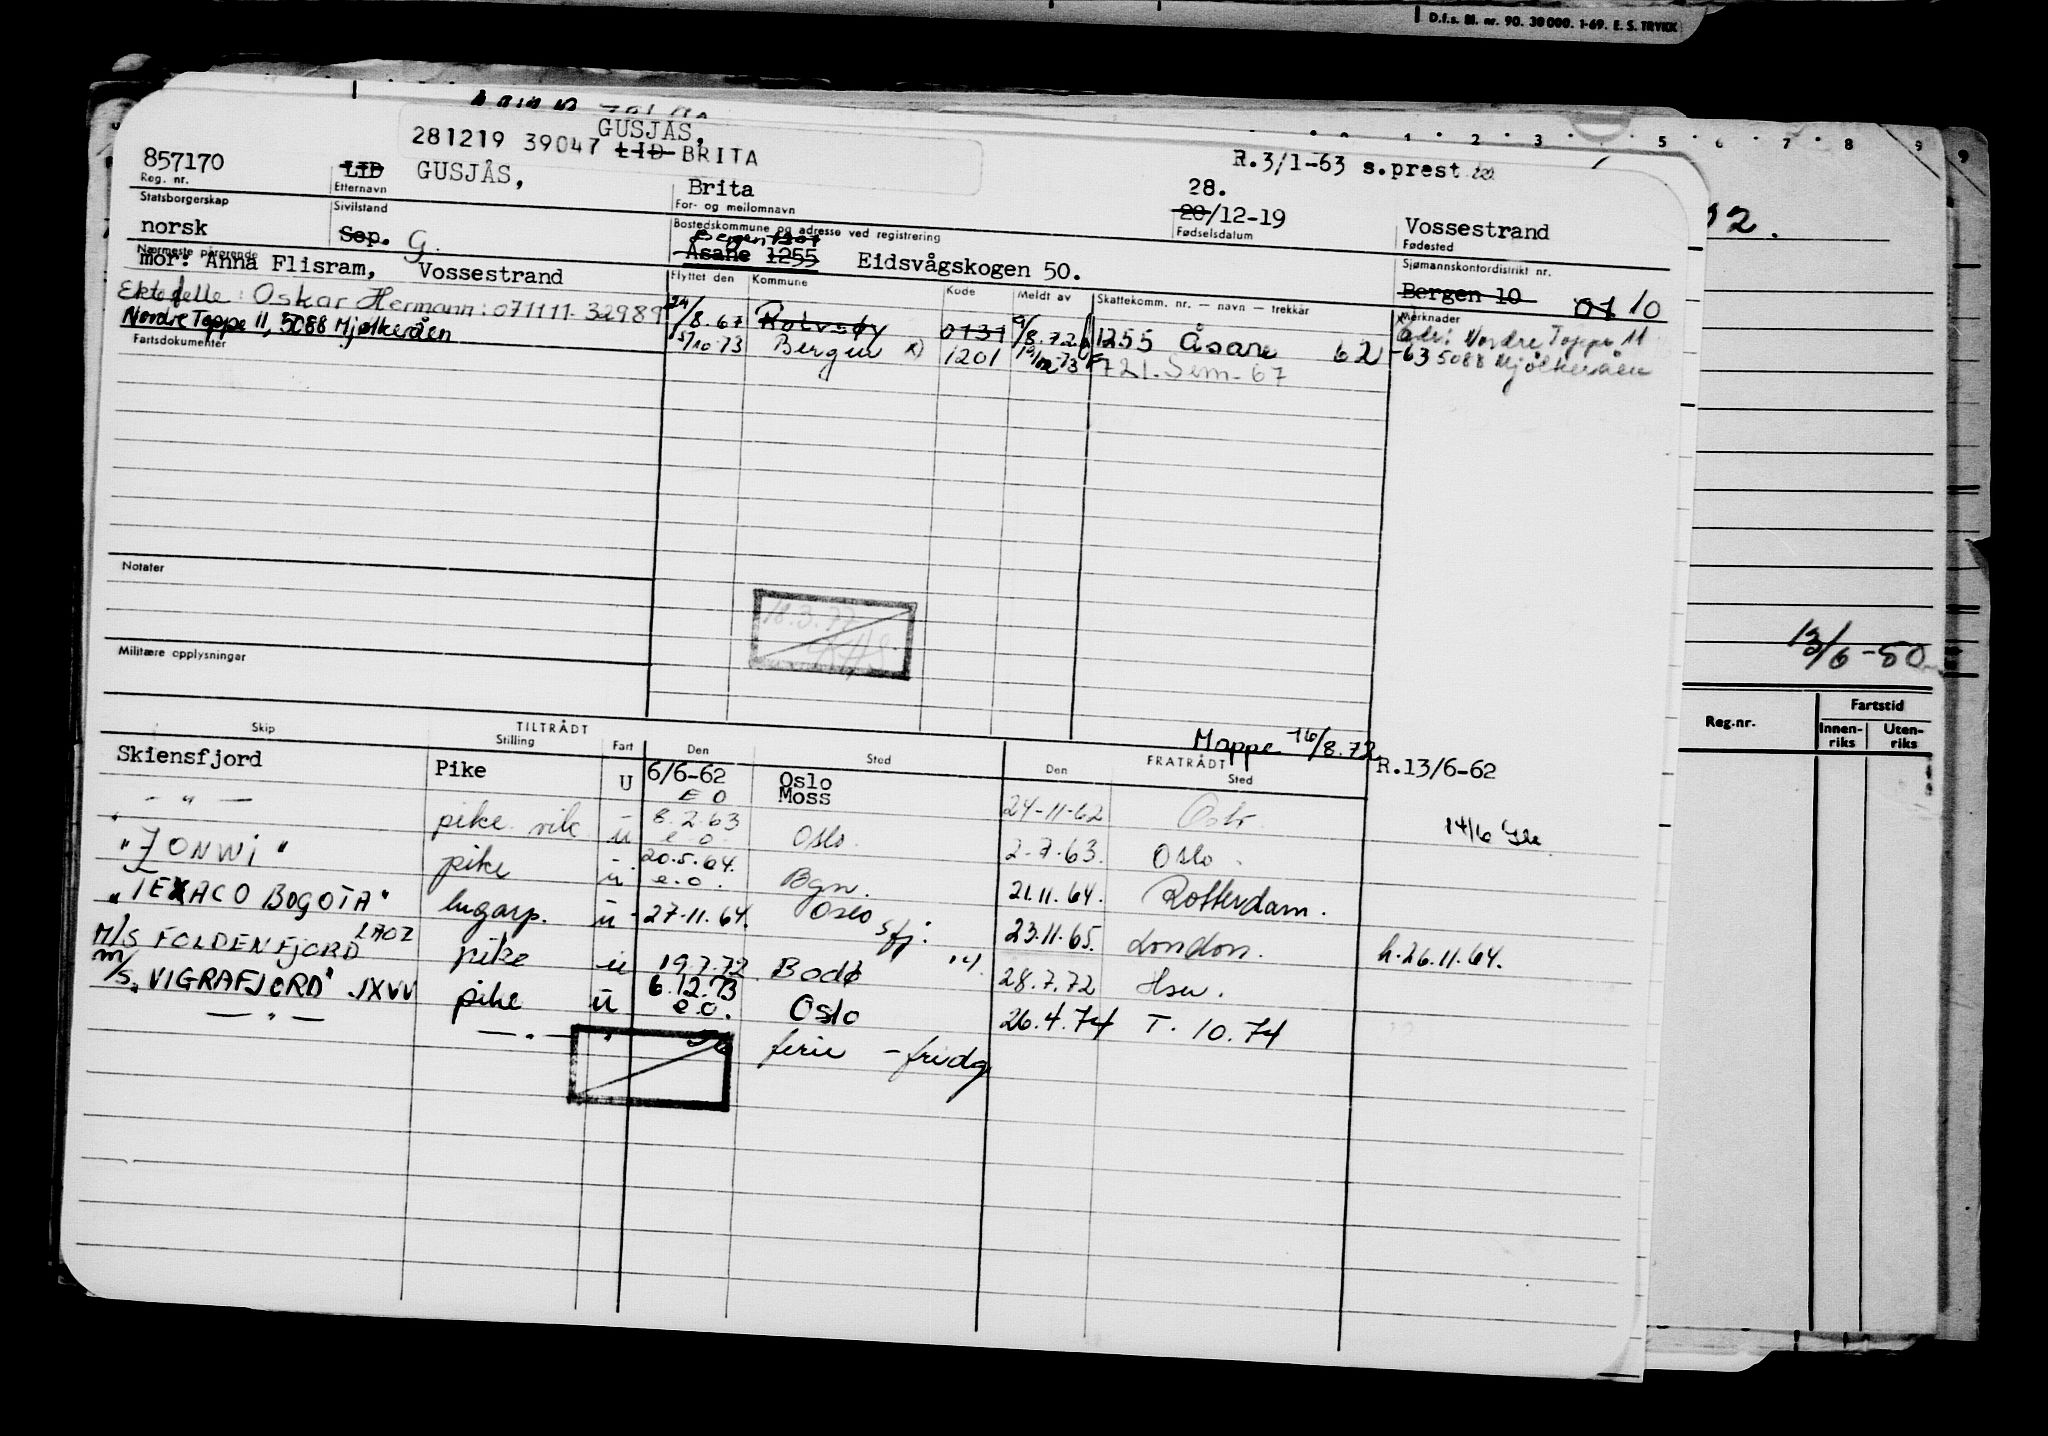 D.f.s. Bl. nr. 90. 30 000. 1-69. E. S. TRYKK
1 2 3 5 6 7 8 9
GUSJÅS,
281219 39047 LID BRITA
857170 LID GUSJÅS, Brita 28. R.3/1-63 s.prest
20/12-19 Vossestrand
Reg. nr. Etternavn For- og mellomnavn Fødselsdatum Fødested
Statsborgerskap Sivilstand Bostedskommune og adresse ved registrering Sjømannskontordistrikt nr.
norsk Sep. G. Bergen 1301
Åsane 1255 Eidsvågskogen 50. Bergen 10 01 10
Nærmeste pårørende Flyttet den Kommune Kode Meldt av Skattekomm. nr. — navn — trekkår Merknader
mor: Anna Flisram, Vossestrand
Ektefelle: Oskar Hermann: 071111-32989
Nordre Toppe 11, 5088 Mjølkeråen
/8.67 Rolvsøy 0131 /8.72 1255 Åsane 62 -63
15/10-73 Bergen x) 1201 721. Sem - 67
x) adr: Nordre Toppe 11
5088 Mjølkeråen
Fartsdokumenter
Notater
18.3.77
Militære opplysninger
Mappe 16/8.72
TILTRÅDT FRATRÅDT
Skip Stilling Fart Den Sted Den Sted
Skiensfjord Pike U 6/6-62 Oslo R.13/6-62
— " — E O Moss 24-11-62 14/6
pike vik 8.2.63
u e o Oslo. 2.7.63. Oslo.
"JONWI" pike u 20.5.64. e.o. Bgn. 21.11.64. Rotterdam.
"TEXACO BOGOTA" lugarp. u 27.11.64. Oslo 23.11.65. London. h.26.11.64.
M/S FOLDENFJORD LAOZ pike u 19.7.72 Bodø 28.7.72 Hsu.
M/S "VIGRAFJORD" JXVV pike u 6.12.73 e.o. Oslo 26.4.74 T. 10.74
— " — — " — ferie - fridg
13/6-50
Reg.nr. Fartstid
Innen-riks Uten-riks